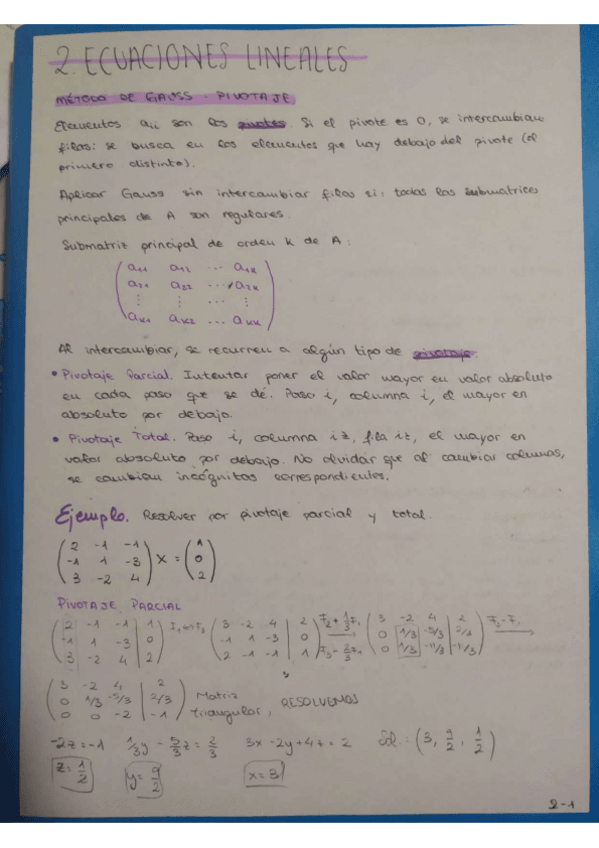 2. ECUACIONES LINEALES
MÉTODO DE GAUSS - PIVOTAJE
Elementos aii son los pivotes. Si el pivote es 0, se intercambian
filas: se busca en los elementos que hay debajo del pivote (el
primero distinto).
Aplicar Gauss sin intercambiar filas si: todas las submatrices
principales de A son regulares.
Submatriz principal de orden k de A:
a11 a12 ... a1k
a21 a22 ... a2k
⋮ ⋮ ⋮
ak1 ak2 ... akk
Al intercambiar, se recurren a algún tipo de pivotaje.
• Pivotaje Parcial. Intentar poner el valor mayor en valor absoluto
en cada paso que se dé. Paso i, columna i, el mayor en
absoluto por debajo.
• Pivotaje Total. Paso i, columna i≥, fila i≥, el mayor en
valor absoluto por debajo. No olvidar que al cambiar columnas,
se cambian incógnitas correspondientes.
Ejemplo. Resolver por pivotaje parcial y total.
(2 -1 -1; -1 1 -3; 3 -2 4) x = (1; 0; 2)
PIVOTAJE PARCIAL
(2 -1 -1 | 1; -1 1 -3 | 0; 3 -2 4 | 2) F1↔F3 (3 -2 4 | 2; -1 1 -3 | 0; 2 -1 -1 | 1) F2+1/3F1 F3-2/3F1 (3 -2 4 | 2; 0 1/3 -5/3 | 2/3; 0 1/3 -11/3 | -1/3) F3-F2
(3 -2 4 | 2; 0 1/3 -5/3 | 2/3; 0 0 -2 | -1) Matriz triangular, RESOLVEMOS
-2z=-1 1/3y - 5/3z = 2/3 3x-2y+4z=2 Sol: (3, 9/2, 1/2)
z=1/2 y=9/2 x=3
2-1